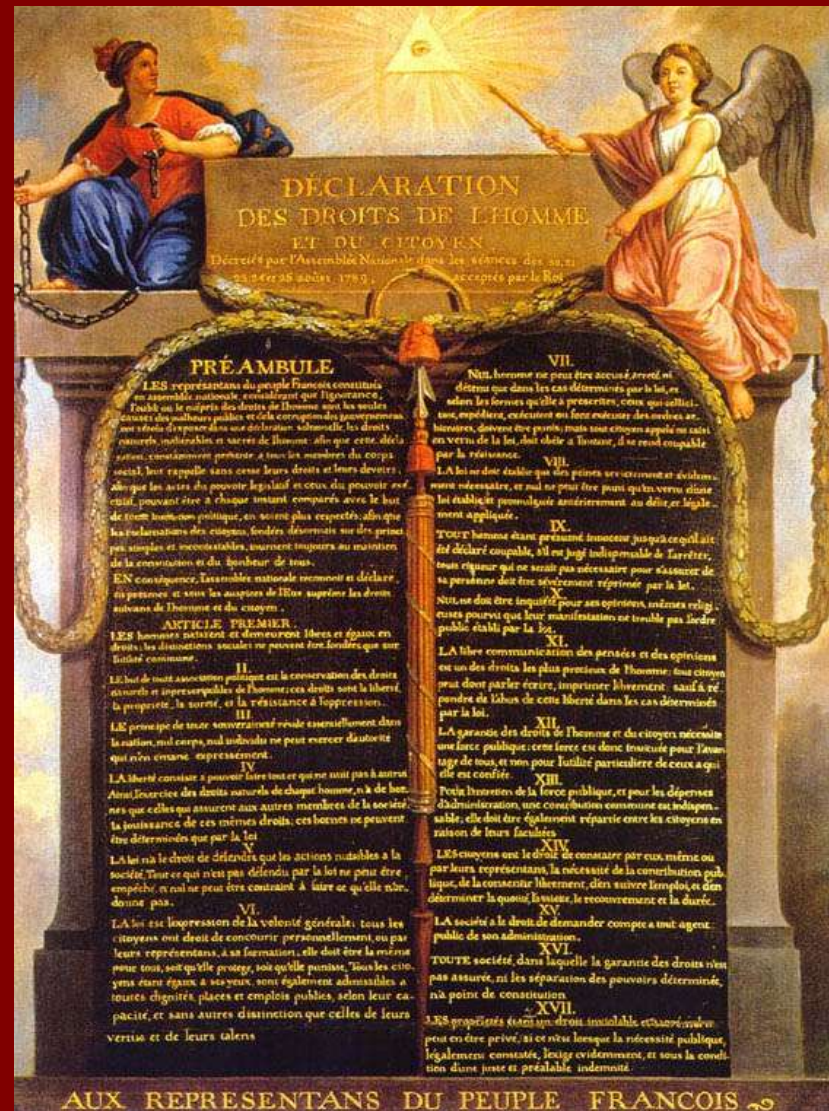 DÉCLARATION
DES DROITS DE L'HOMME
ET DU CITOYEN
Décretés par l'Assemblée Nationale dans les séances des 20, 21
23, 24 et 26 août 1789, acceptés par le Roi
PRÉAMBULE
LES représentans du peuple François constitués
en assemblée nationale, considérant que l'ignorance,
l'oubli ou le mépris des droits de l'homme sont les seules
causes des malheurs publics et de la corruption des gouvernemens
ont résolu d'exposer dans une déclaration solemnelle, les droits
naturels, inaliénables et sacrés de l'homme: afin que cette décla
ration, constamment présente a tous les membres du corps
social, leur rappelle sans cesse leurs droits et leurs devoirs,
afin que les actes du pouvoir legislatif et ceux du pouvoir exé
cutif, pouvant être à chaque instant comparés avec le but
de toute institution politique, en soient plus respectés; afin que
les reclamations des citoyens, fondées désormais sur des princi
pes simples et incontestables, tournent toujours au maintien
de la constitution et du bonheur de tous.
EN conséquence, l'assemblée nationale reconnoit et déclare,
en presence et sous les auspices de l'Etre suprême les droits
suivans de l'homme et du citoyen.
ARTICLE PREMIER.
LES hommes naissent et demeurent libres et égaux en
droits; les distinctions sociales ne peuvent être fondées que sur
l'utilité commune.
II.
LE but de toute association politique est la conservation des droits
naturels et imprescriptibles de l'homme; ces droits sont la liberté,
la propriété, la sureté, et la résistance à l'oppression.
III.
LE principe de toute souveraineté réside essentiellement dans
la nation, nul corps, nul individu ne peut exercer d'autorité
qui n'en emane expressement.
IV.
LA liberté consiste a pouvoir faire tout ce qui ne nuit pas à autrui
Ainsi, l'exercice des droits naturels de chaque homme, n'a de bor-
nes que celles qui assurent aux autres membres de la société
la jouissance de ces mêmes droits; ces bornes ne peuvent
être déterminées que par la loi
V.
LA loi n'a le droit de défendre que les actions nuisibles a la
société. Tout ce qui n'est pas défendu par la loi ne peut être
empêché, et nul ne peut être contraint à faire ce qu'elle n'or-
donne pas.
VI.
LA loi est l'expression de la volonté générale; tous les
citoyens ont droit de concourir personnellement, ou par
leurs représentans, à sa formation; elle doit être la même
pour tous, soit qu'elle protege, soit qu'elle punisse, Tous les cito-
yens étant égaux à ses yeux, sont également admissibles a
toutes dignités, places et emplois publics, selon leur ca-
pacité, et sans autres distinction que celles de leurs
vertus et de leurs talens
VII.
NUL homme ne peut être accusé, arreté, ni
détenu que dans les cas déterminés par la loi, et
selon les formes qu'elle à prescrites, ceux qui sollici-
tent, expédient, exécutent ou font exécuter des ordres ar-
bitraires, doivent être punis; mais tout citoyen appelé ou saisi
en vertu de la loi, doit obéir a l'instant, il se rend coupable
par la résistance.
VIII.
LA loi ne doit établir que des peines strictement et évidem-
ment nécessaire, et nul ne peut être puni qu'en vertu d'une
loi établie, et promulguée antérierement au délit, et légale-
ment appliquée.
IX.
TOUT homme étant présumé innocent jusqu'à ce qu'il ait
été déclaré coupable, s'il est jugé indispensable de l'arrêter,
toute rigueur qui ne serait pas nécessaire pour s'assurer de
sa personne doit être sévèrement réprimée par la loi.
X.
NUL ne doit être inquiété pour ses opinions, mêmes religi-
euses pourvu que leur manifestation ne trouble pas l'ordre
public établi par la loi.
XI.
LA libre communication des pensées et des opinions
est un des droits les plus precieux de l'homme; tout citoyen
peut donc parler écrire, imprimer librement: sauf à ré-
pondre de l'abus de cette liberté dans les cas déterminés
par la loi.
XII.
LA garantie des droits de l'homme et du citoyen nécessite
une force publique; cette force est donc instituée pour l'avan-
tage de tous, et non pour l'utilité particuliere de ceux a qui
elle est confiée.
XIII.
Pour l'entretien de la force publique, et pour les dépenses
d'administration, une contribution commune est indispen-
sable; elle doit être également répartie entre les citoyens en
raison de leurs facultées
XIV.
LES citoyens ont le droit de constater par eux même ou
par leurs représentans, la nécessité de la contribution pub-
lique, de la consentir librement, d'en suivre l'emploi, et d'en
déterminer la quotité, l'assiette, le recouvrement et la durée.
XV.
LA société a le droit de demander compte a tout agent
public de son administration.
XVI.
TOUTE société, dans laquelle la garantie des droits n'est
pas assurée, ni les séparation des pouvoirs déterminée,
n'a point de constitution
XVII.
LES propriétés étant un droit inviolable et sacré, nul ne
peut en être privé, si ce n'est lorsque la nécessité publique,
légalement constatée, l'exige evidemment, et sous la condi-
tion d'une juste et préalable indemnité.
AUX REPRESENTANS DU PEUPLE FRANCOIS